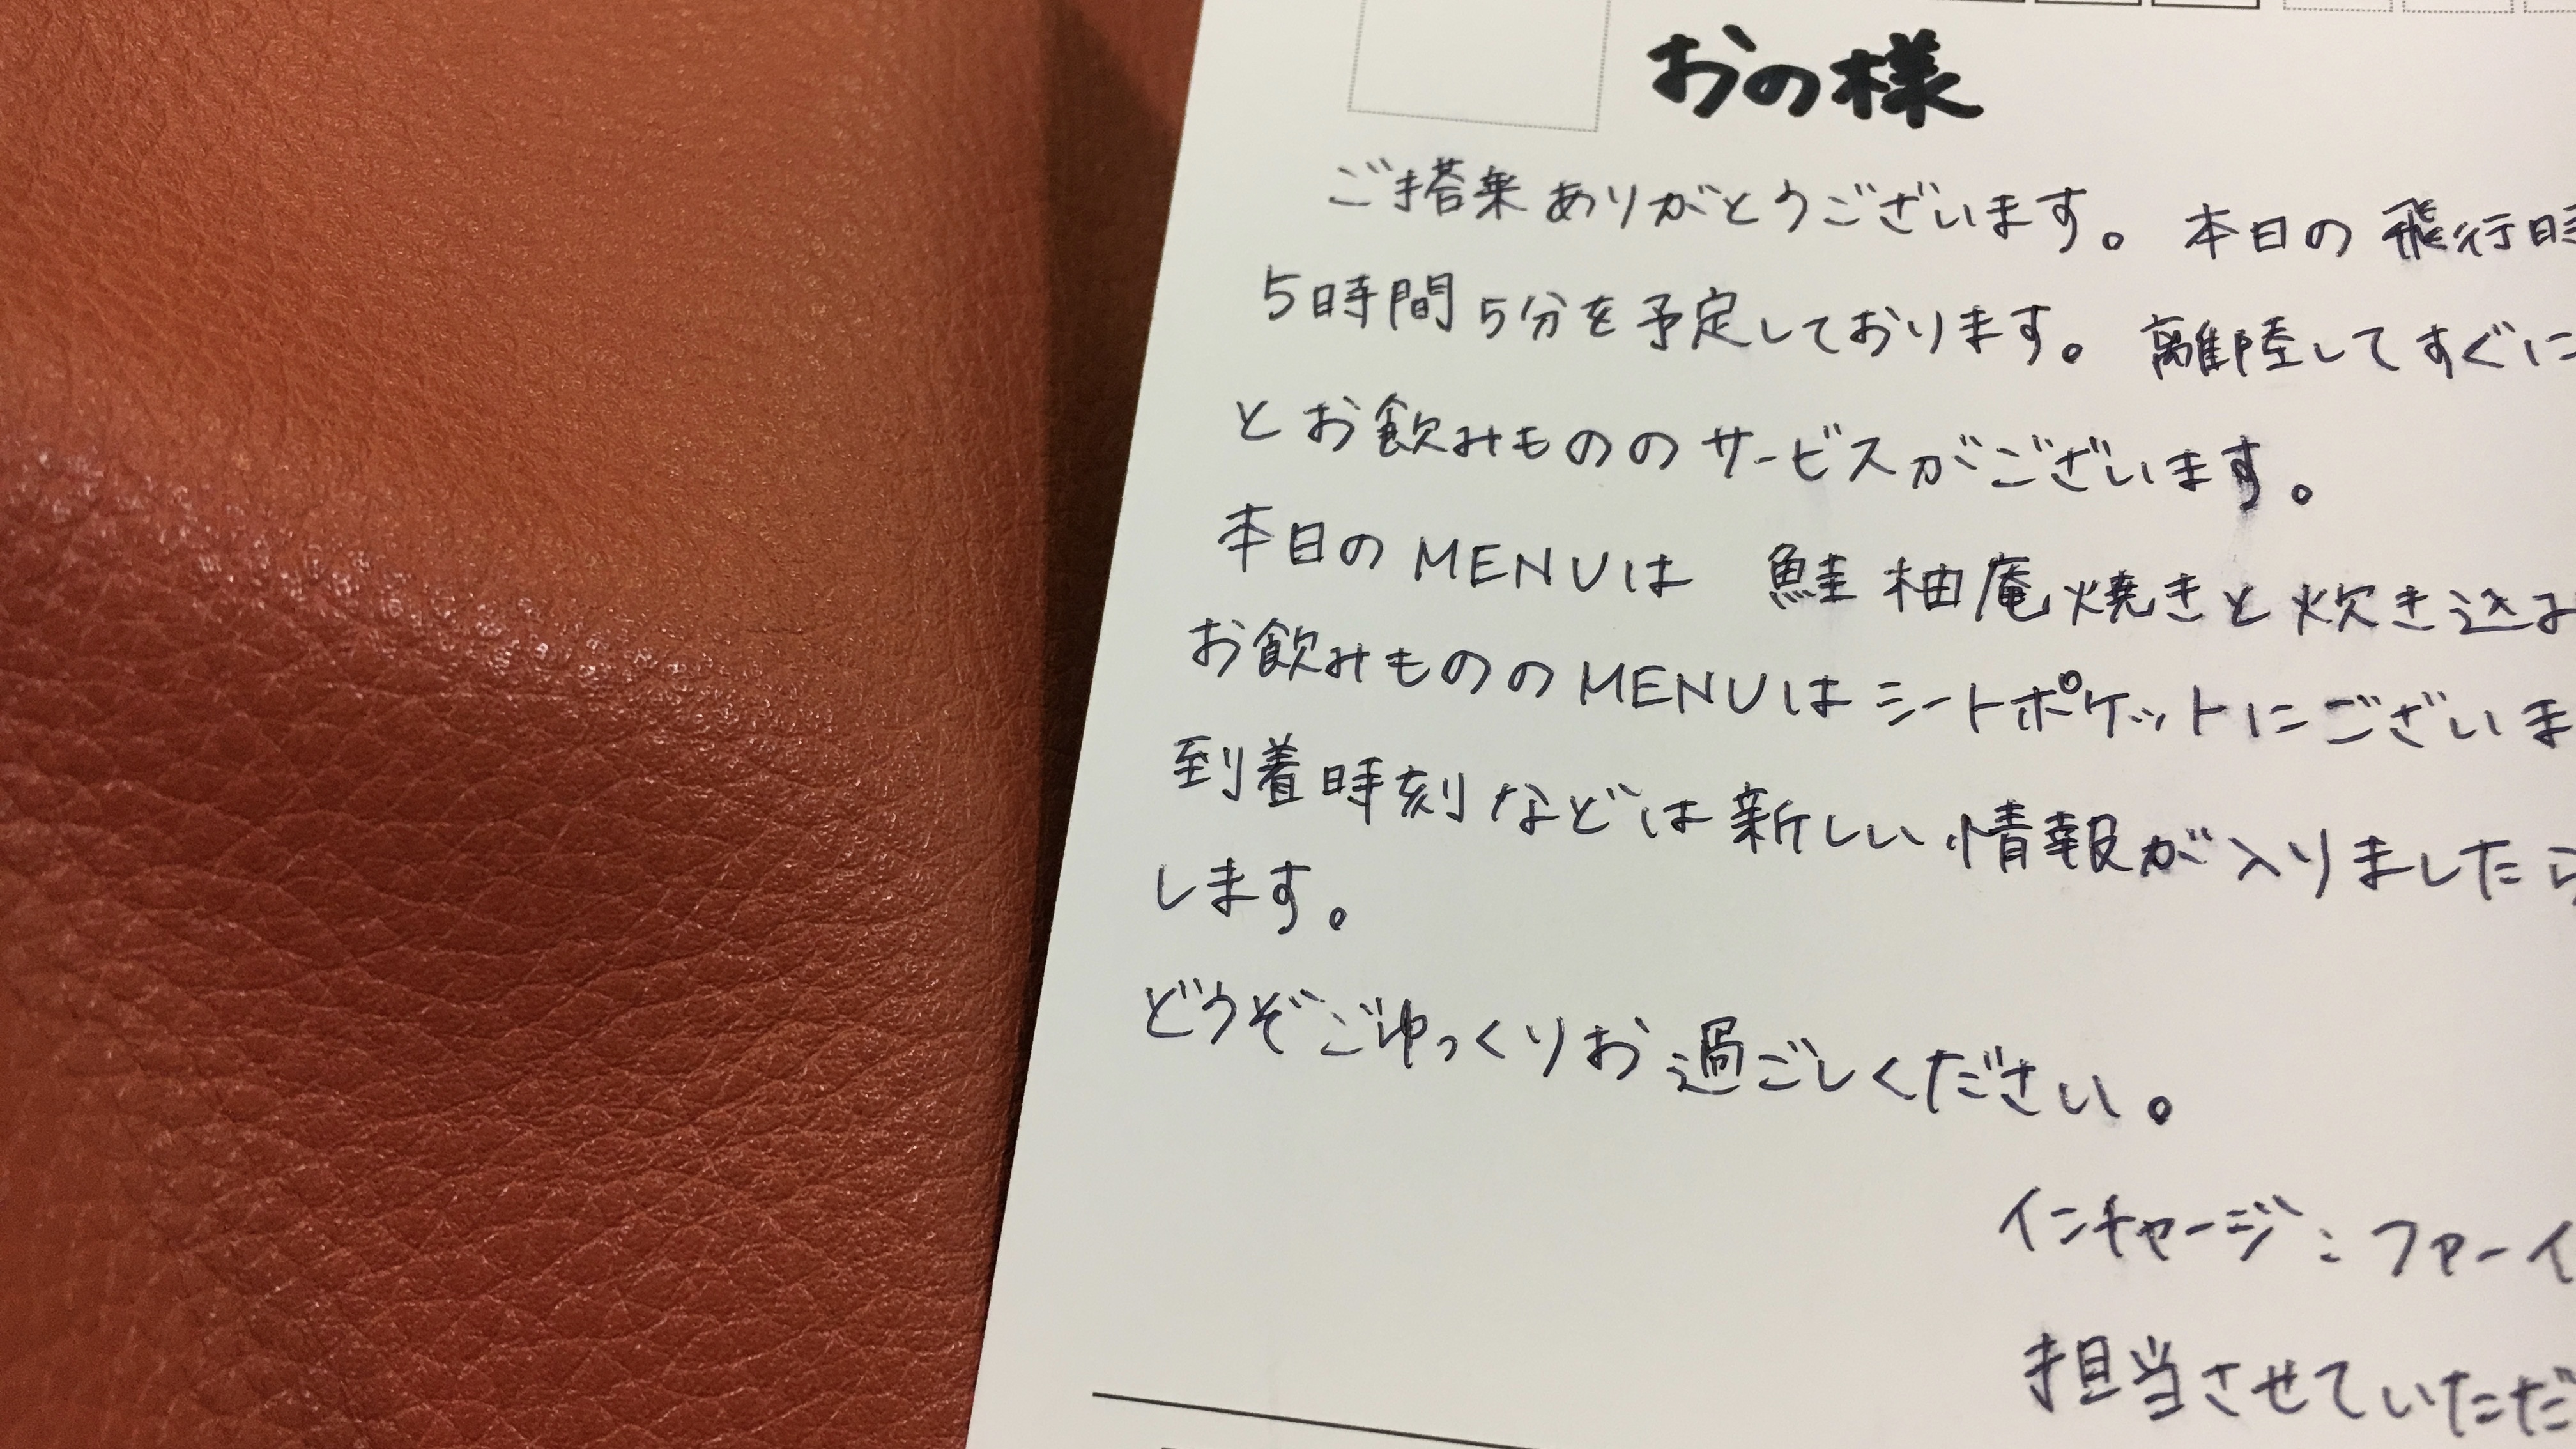 おの様
ご搭乗ありがとうございます。本日の飛行時
5時間5分を予定しております。離陸してすぐに
とお飲みもののサービスがございます。
本日のMENUは 鮭柚庵焼きと炊き込み
お飲みもののMENUはシートポケットにございま
到着時刻などは新しい情報が入りましたら
します。
どうぞごゆっくりお過ごしください。
インチャージ:ファーイ
担当させていただ